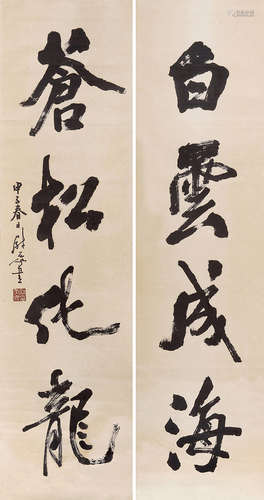 白雲成海
蒼松化龍
甲子春日